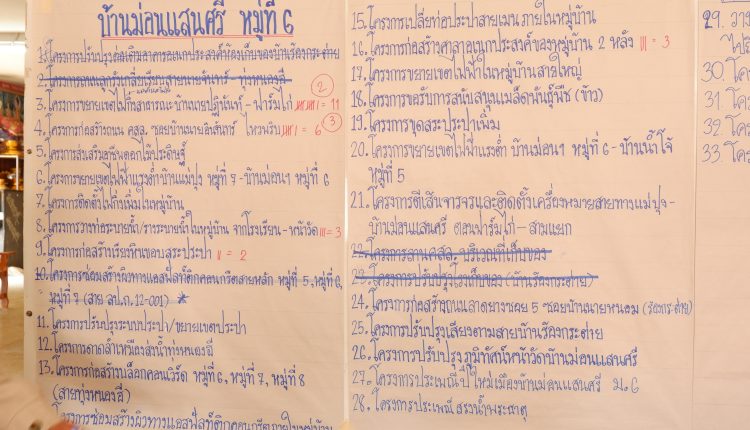 บ้านม่อนแสนศรี หมู่ที่ 6
1. โครงการปรับปรุงต่อเติมอาคารอเนกประสงค์ห้องเก็บของบ้านร้องกระต่าย
3. โครงการขยายเขตไฟกิ่งสาธารณะบ้านนายปฏินันท์ - ฟาร์มไก่ = 11
②
4. โครงการก่อสร้างถนน คสล. ซอยบ้านนายอินสันทร์ ไหวพริบ = 6
③
5. โครงการส่งเสริมอาชีพดอกไม้ประดิษฐ์
6. โครงการขยายเขตไฟฟ้าแรงต่ำบ้านแม่ปุง หมู่ที่ 7 - บ้านม่อน 1 หมู่ที่ 6
7. โครงการติดตั้งไฟกิ่งเพิ่มในหมู่บ้าน
8. โครงการวางท่อระบายน้ำ/รางระบายน้ำในหมู่บ้าน จากโรงเรียน - หน้าวัด = 3
9. โครงการก่อสร้างเรียงหินขอบสระประปา = 2
10. โครงการซ่อมสร้างผิวทางแอสฟัลท์ติกคอนกรีตสายหลัก หมู่ที่ 5, หมู่ที่ 6,
หมู่ที่ 7 (สาย ลป.ถ. 12-001)
11. โครงการปรับปรุงระบบประปา/ขยายเขตประปา
12. โครงการดาดลำเหมืองส่งน้ำทุ่งหนองอี่
13. โครงการก่อสร้างบล็อกคอนเวิร์ด หมู่ที่ 6, หมู่ที่ 7, หมู่ที่ 8
(สายทุ่งหนองอี่)
โครงการซ่อมสร้างผิวทางแอสฟัลท์ติกคอนกรีตภายในหมู่บ้าน
15. โครงการเปลี่ยนท่อประปาสายเมน ภายในหมู่บ้าน
16. โครงการก่อสร้างศาลาอเนกประสงค์ของหมู่บ้าน 2 หลัง = 3
17. โครงการขยายเขตไฟฟ้าในหมู่บ้านสายใหญ่
18. โครงการขอรับการสนับสนุนเมล็ดพันธุ์พืช (ข้าว)
19. โครงการขุดสระประปาเพิ่ม
20. โครงการขยายเขตไฟฟ้าแรงต่ำ บ้านม่อน 1 หมู่ที่ 6 - บ้านน้ำโจ้
หมู่ที่ 5
21. โครงการตีเส้นจราจรและติดตั้งเครื่องหมายสายทางแม่ปุง -
บ้านม่อนแสนศรี ตอนฟาร์มไก่ - สามแยก
22. โครงการลานคสล. บริเวณที่เก็บของ
23. โครงการปรับปรุงโรงเก็บของ (บ้านร้องกระต่าย)
24. โครงการก่อสร้างถนนลาดยางซอย 5 ซอยบ้านนายหนอม (ร้องกระต่าย)
25. โครงการปรับปรุงเสียงตามสายบ้านร้องกระต่าย
26. โครงการปรับปรุงภูมิทัศน์หน้าวัดบ้านม่อนแสนศรี
27. โครงการประเพณีปี๋ใหม่เมืองบ้านม่อนแสนศรี ม.6
28. โครงการประเพณีสรงน้ำพระธาตุ
29. วาง
30. โคร
31. โคร
32. โคร
33. โคร